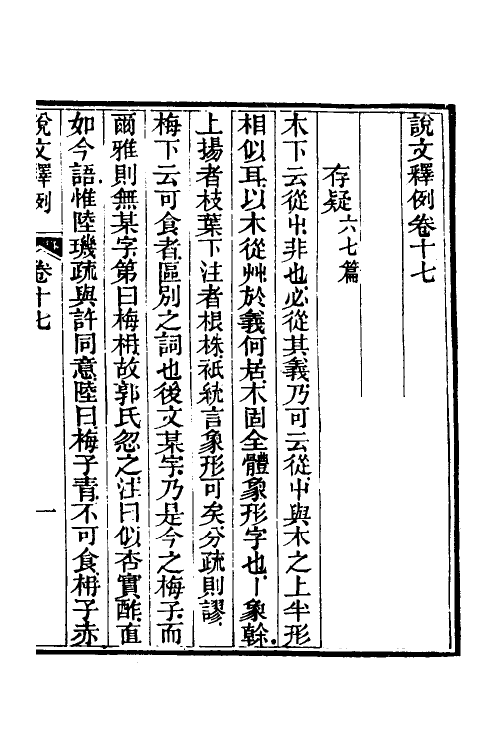 說文釋例卷十七
存疑六七篇
木下云從屮非也必從其義乃可云從屮與木之上半形
相似耳以木從艸於義何居木固全體象形字也丨象榦
上揚者枝葉下注者根株衹統言象形可矣分疏則謬
梅下云可食者區別之詞也後文某字乃是今之梅子而
爾雅則無某字第曰梅枏故郭氏忽之注曰似杏實酢直
如今語惟陸璣疏與許同意陸曰梅子青不可食枏子赤
說文釋例 卷十七 一